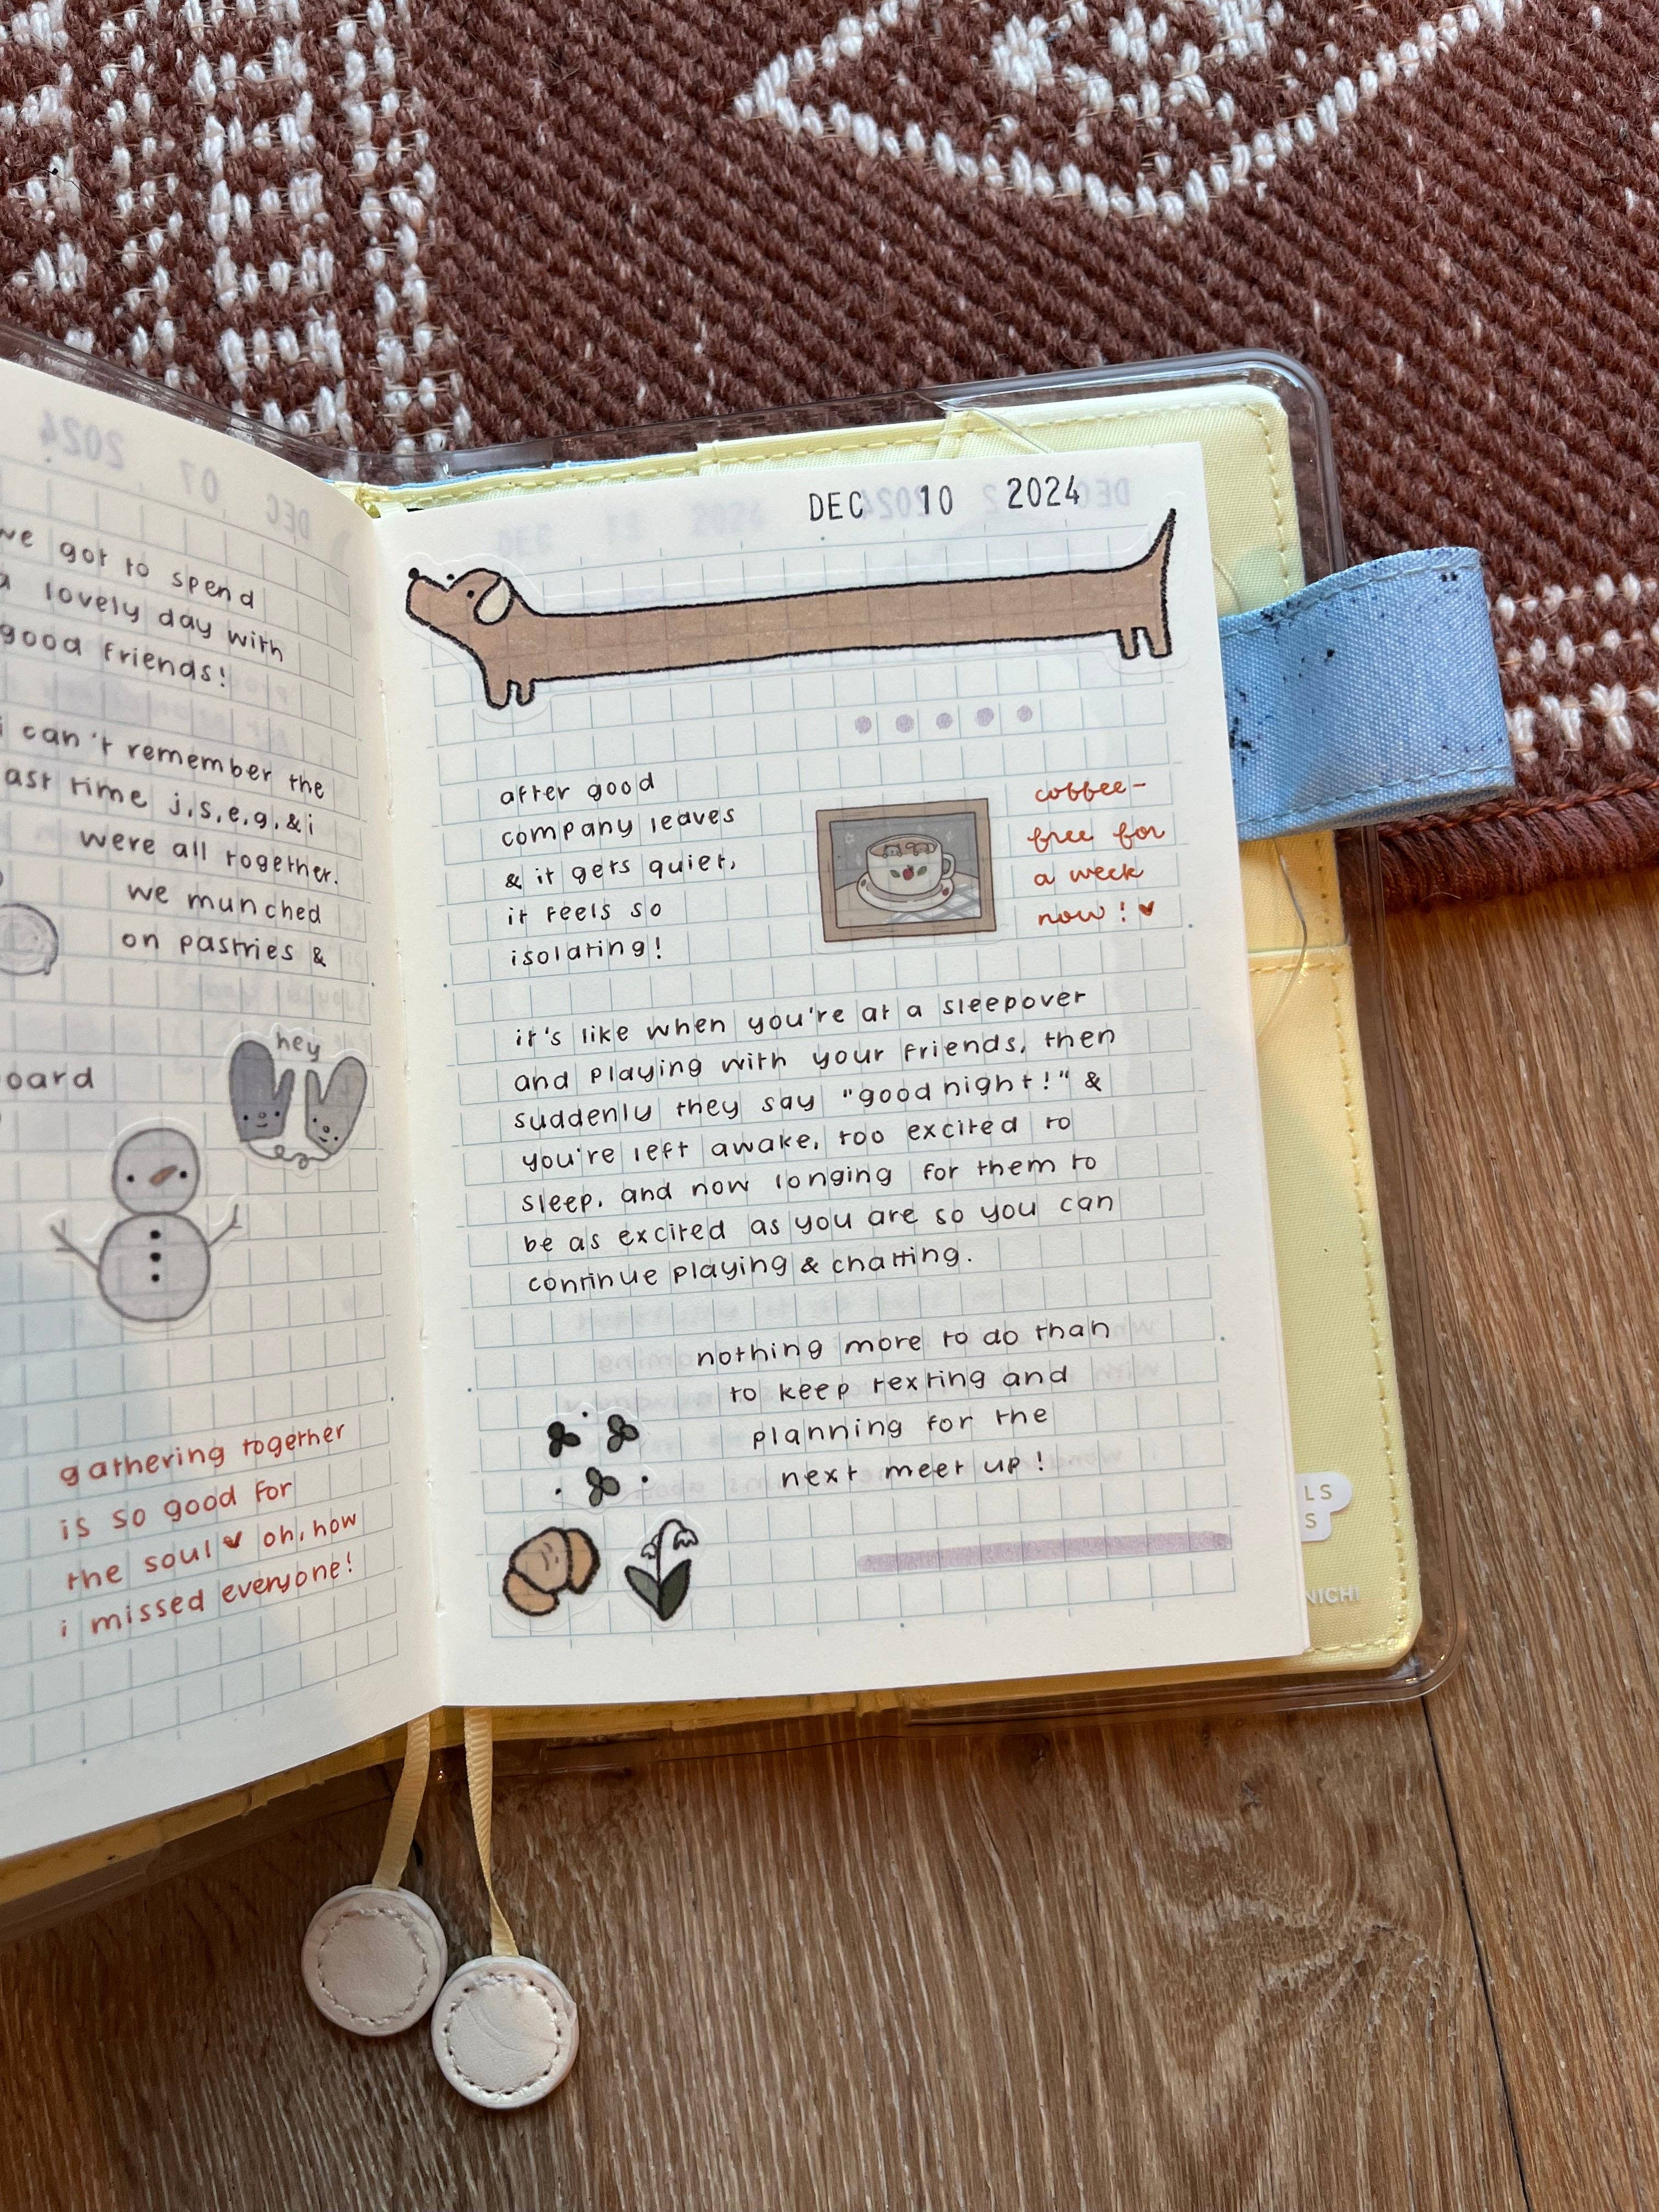 we got to spend
a lovely day with
good friends!
i can't remember the
last time j,s,e,g,&i
were all together.
we munched
on pastries &
hey
oard
gathering together
is so good for
the soul♥ oh, how
i missed everyone!
DEC 10 2024
after good
company leaves
& it gets quiet,
it feels so
isolating!
coffee-
free for
a week
now!♥
it's like when you're at a sleepover
and playing with your friends, then
suddenly they say "good night!" &
you're left awake, too excited to
sleep, and now longing for them to
be as excited as you are so you can
continue playing & chatting.
nothing more to do than
to keep texting and
planning for the
next meet up!
LS
S
NICHI